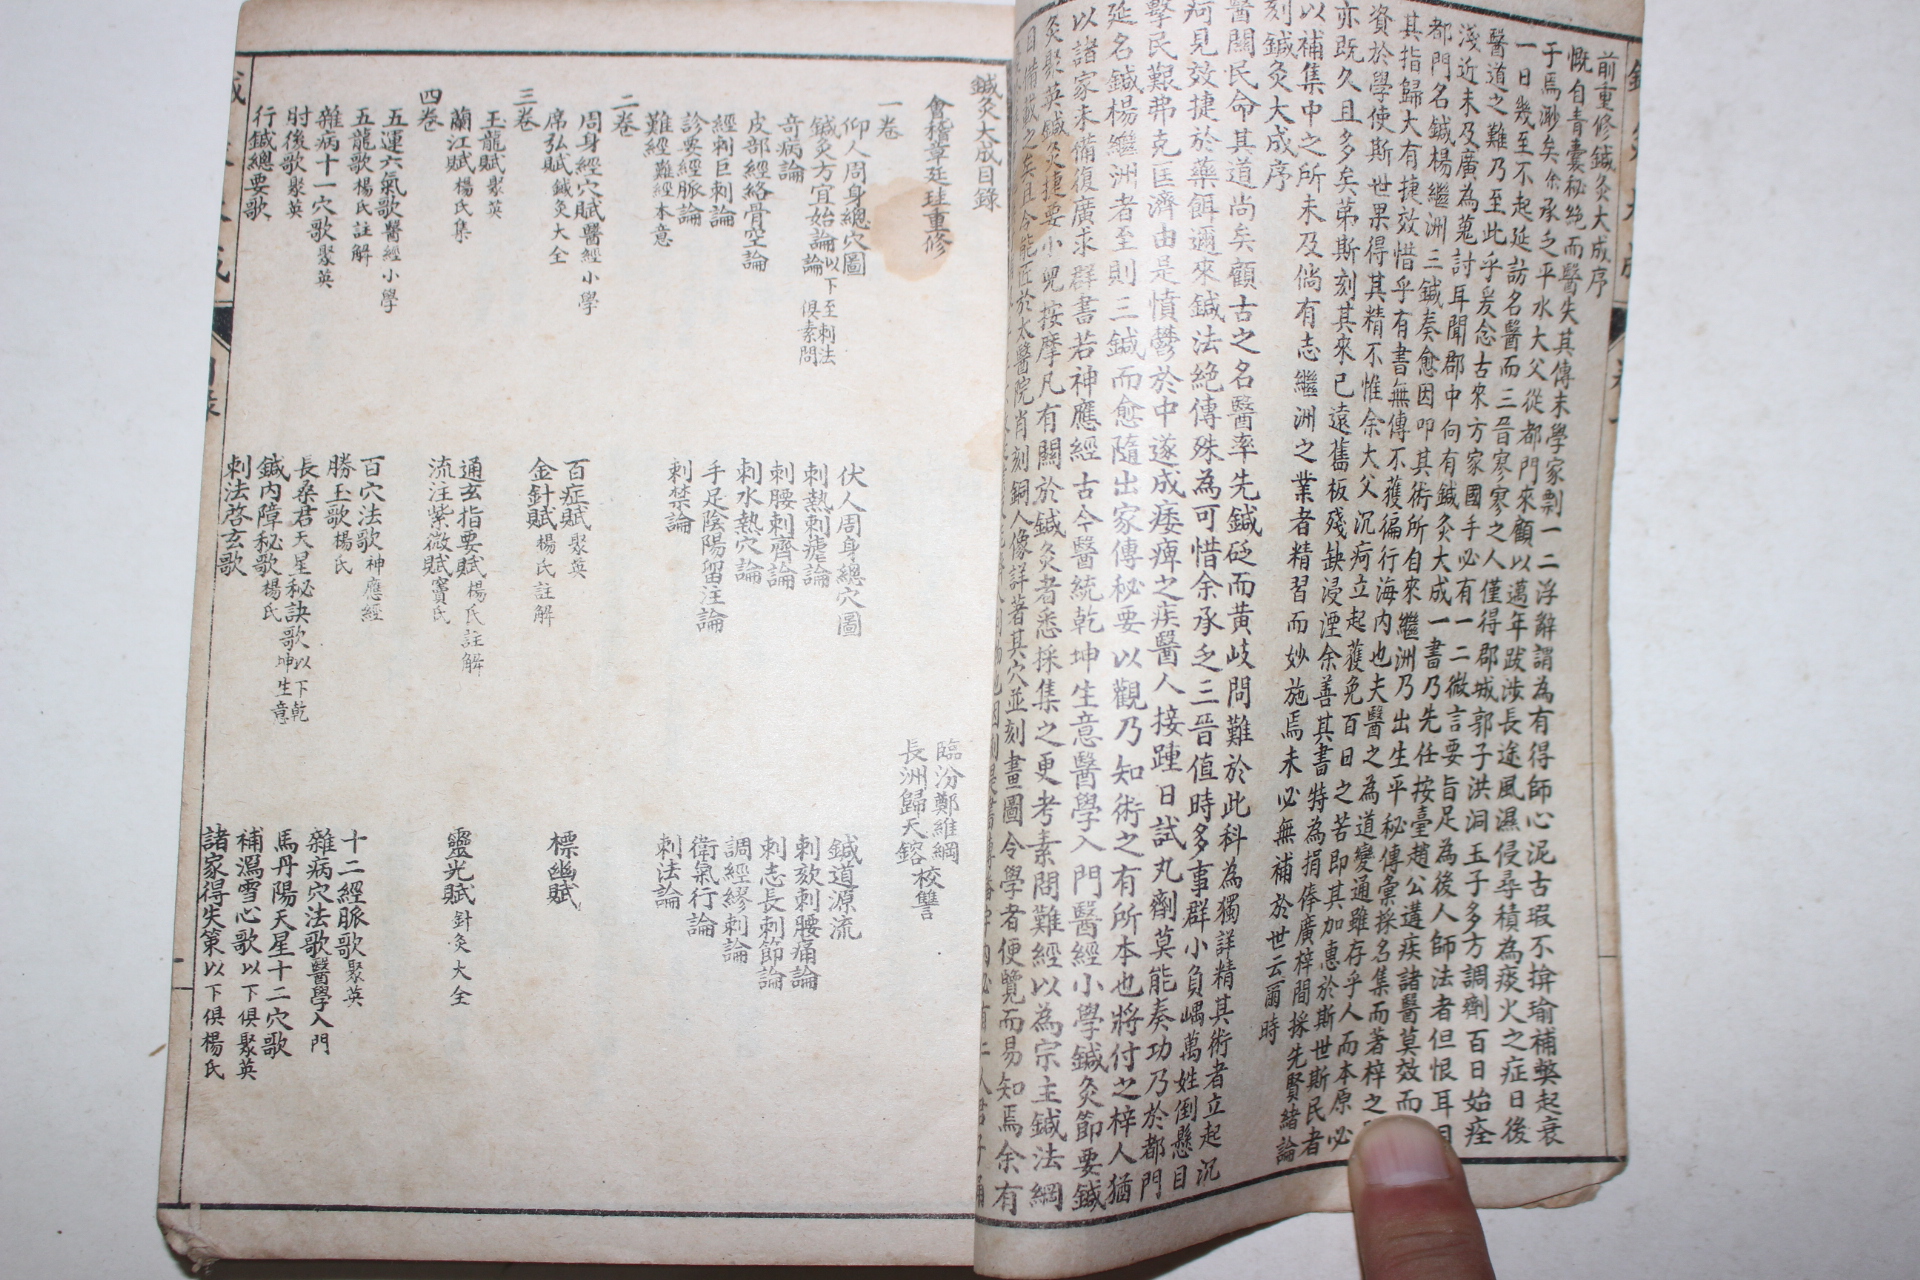 前重修鍼灸大成序
慨自青囊秘絶而醫失其傳末學家剽一二浮辭謂為有得師心泥古瑕不揜瑜補獘起衰
于焉渺矣余承乏平水大父從都門來顧以邁年跋涉長途風濕侵尋積為痰火之症日後
一日幾至不起延訪名醫而三晉寥寥之人僅得郡城郭子洪洞玉子多方調劑百日始痊
醫道之難乃至此乎爰念古來方家國手必有一二微言要旨足為後人師法者但恨耳目
淺近未及廣為蒐討耳聞郡中向有鍼灸大成一書乃先任按臺趙公遘疾諸醫莫效而
都門名鍼楊繼洲三鍼奏愈因叩其術所自來繼洲乃出生平秘傳彙採名集而著梓之
其指歸大有捷效惜乎有書無傳不獲徧行海內也夫醫之為道變通雖存乎人而本原必
資於學使斯世果得其精不惟余大父沉疴立起獲免百日之苦即其加惠於斯世斯民者
亦既久且多矣苐斯刻其來已遠舊板殘缺浸湮余善其書特為捐俸廣梓間採先賢緒論
以補集中之所未及倘有志繼洲之業者精習而妙施焉未必無補於世云爾時
刻鍼灸大成序
醫關民命其道尚矣顧古之名醫率先鍼砭而黃岐問難於此科為獨詳精其術者立起沉
疴見效捷於藥餌邇來鍼法絶傳殊為可惜余承乏三晉值時多事群小負嵎萬姓倒懸目
擊民艱弗克匡濟由是憤鬱於中遂成痿痺之疾醫人接踵日試丸劑莫能奏功乃於都門
延名鍼楊繼洲者至則三鍼而愈隨出家傳秘要以觀乃知術之有所本也將付之梓人猶
以諸家未備復廣求群書若神應經古今醫統乾坤生意醫學入門醫經小學鍼灸節要鍼
灸聚英鍼灸捷要小兒按摩凡有關於鍼灸者悉採集之更考素問難經以為宗主鍼法綱
目備載之矣且令能匠於太醫院肖刻銅人像詳著其穴並刻畫圖令學者便覽而易知焉余有
鍼灸大成目錄
會稽章廷珪重修
臨汾鄭維綱
長洲歸天鎔 校讐
一卷
仰人周身總穴圖 伏人周身總穴圖 鍼道源流
鍼灸方宜始論 以下至刺法論俱素問 刺熱刺瘧論 刺欬刺腰痛論
奇病論 刺腰刺齊論 刺志長刺節論
皮部經絡骨空論 刺水熱穴論 調經繆刺論
經刺巨刺論 手足陰陽留注論 衛氣行論
診要經脈論 刺禁論 刺法論
難經 難經本意
二卷
周身經穴賦 醫經小學 百症賦 聚英 標幽賦
席弘賦 鍼灸大全 金針賦 楊氏註解
三卷
玉龍賦 聚英 通玄指要賦 楊氏註解 靈光賦 針灸大全
蘭江賦 楊氏集 流注紫微賦 竇氏
四卷
五運六氣歌 醫經小學 百穴法歌 神應經 十二經脈歌 聚英
五龍歌 楊氏註解 勝玉歌 楊氏 雜病穴法歌 醫學入門
雜病十一穴歌 聚英 長桑君天星秘訣歌 以下乾坤生意 馬丹陽天星十二穴歌
肘後歌 聚英 鍼內障秘歌 楊氏 補瀉雪心歌 以下俱聚英
行鍼總要歌 刺法啓玄歌 諸家得失策 以下俱楊氏